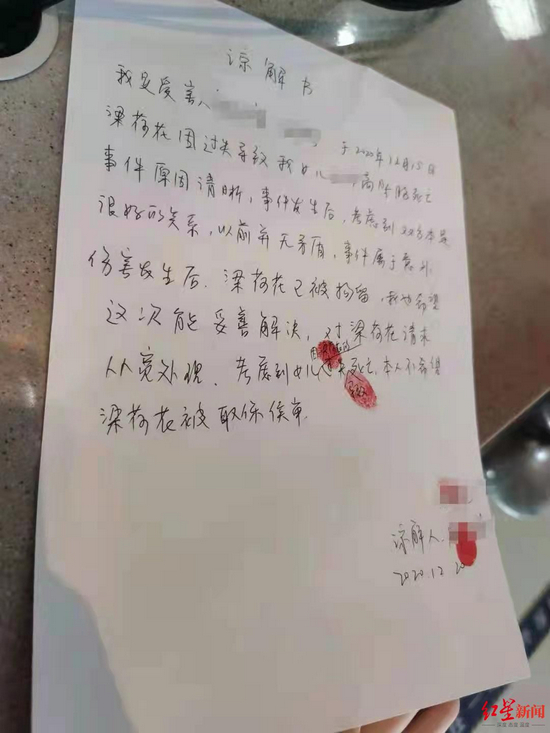 谅解书
我是受害人
梁荷花因过失导致我女儿 于2020年12月15日
事件原因清晰，事件发生后，考虑到双方本是
很好的关系，以前并无矛盾，事件属于意外
伤害发生后，梁荷花已被拘留，我也希望
这次能妥善解决，对梁荷花请求
从宽处理。考虑到女儿 死亡，本人不希望
梁荷花被取保侯审
谅解人
2020.12.20
红星新闻